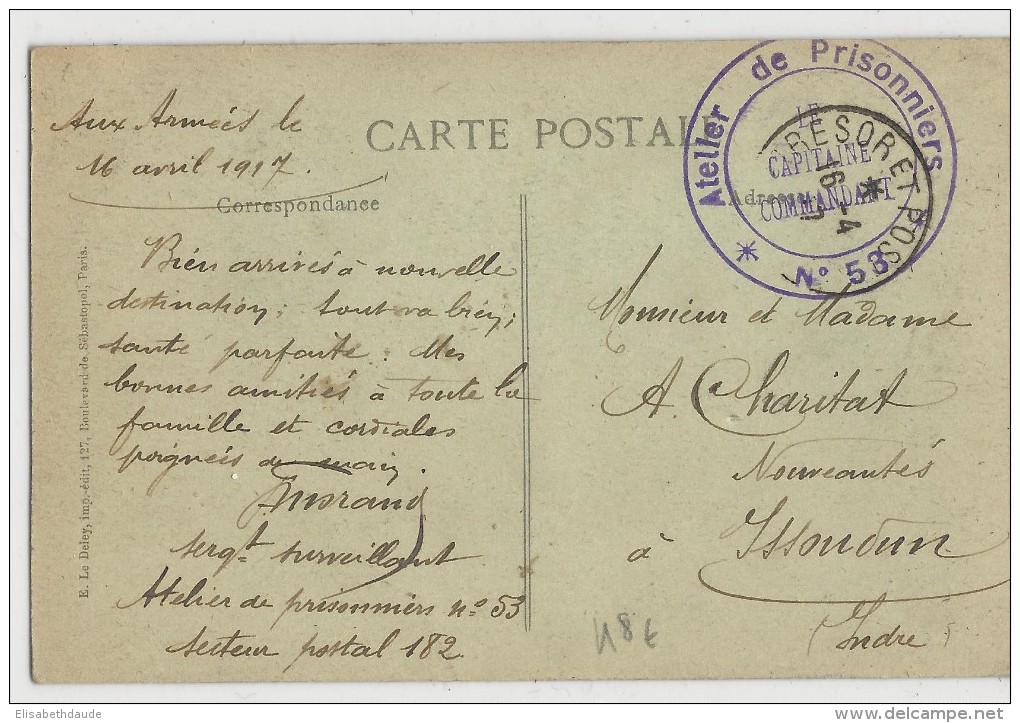 Aux Armées le
16 avril 1917.
CARTE POSTALE
Correspondance
Adresse
Bien arrivés à nouvelle
destination; tout va bien;
santé parfaite. Mes
bonnes amitiés à toute la
famille et cordiales
poignées de main.
Morand
sergt surveillant
Atelier de prisonniers no 53
Secteur postal 182
E. Le Deley, imp.-édit, 127, Boulevard de Sébastopol, Paris.
Atelier de Prisonniers
No 53
LE
CAPITAINE
COMMANDANT
TRESOR ET POS
16-4
Monsieur et Madame
A Charitat
Nouveautés
à Issoudun
(Indre)
48€
Elisabethdaude
www.delcampe.net